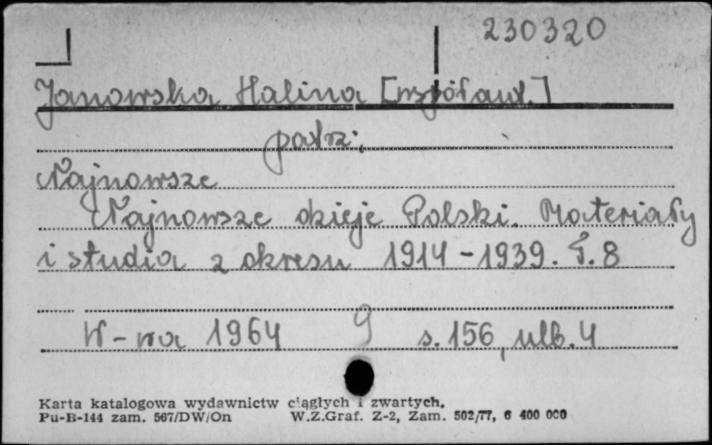 230320
Janowska Halina [współaut.]
patrz:
Najnowsze
Najnowsze dzieje Polski. Materiały
i studia z okresu 1914-1939. T.8
W-wa 1964 9 s.156, nlb.4
Karta katalogowa wydawnictw ciągłych i zwartych.
Pu-B-144 zam. 567/DW/On W.Z.Graf. Z-2, Zam. 502/77, 6 400 000